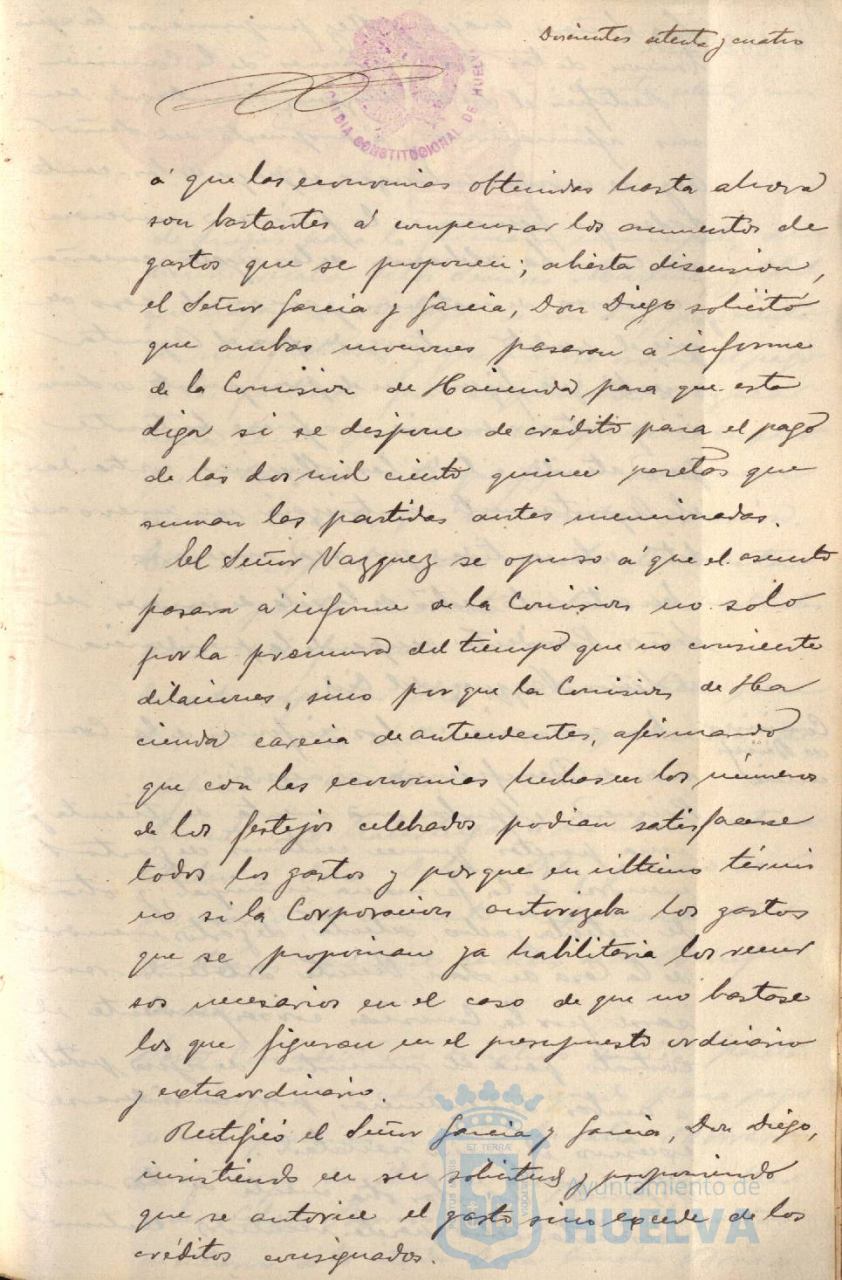 Doscientos setenta y cuatro
CALDIA CONSTITUCIONAL DE HUELV
á que las economias obtenidas hasta ahora
son bastantes á compensar los aumentos de
gastos que se proponen; abierta discusion,
el Señor Garcia y Garcia, Don Diego solicitó
que ambas mociones pasaran á informe
de la Comision de Hacienda para que esta
diga si se dispone de crédito para el pago
de las dos mil ciento quince pesetas que
suman las partidas antes mencionadas.
El Señor Vazquez se opuso á que el asunto
pasara á informe de la Comision no solo
por la premura del tiempo que no consiente
dilaciones, sino por que la Comision de Ha
cienda carecia de antecedentes, afirmando
que con las economias hechas en los números
de los festejos celebrados podian satisfacerse
todos los gastos y porque en último térmi
no si la Corporacion autorizaba los gastos
que se proponian ya habilitaria los recur
sos necesarios en el caso de que no bastase
los que figuran en el presupuesto ordinario
y extraordinario.
Rectificó el Señor Garcia y Garcia, Don Diego,
insistiendo en su solicitud y proponiendo
que se autorice el gasto sino excede de los
créditos consignados.
Ayuntamiento de
HUELVA